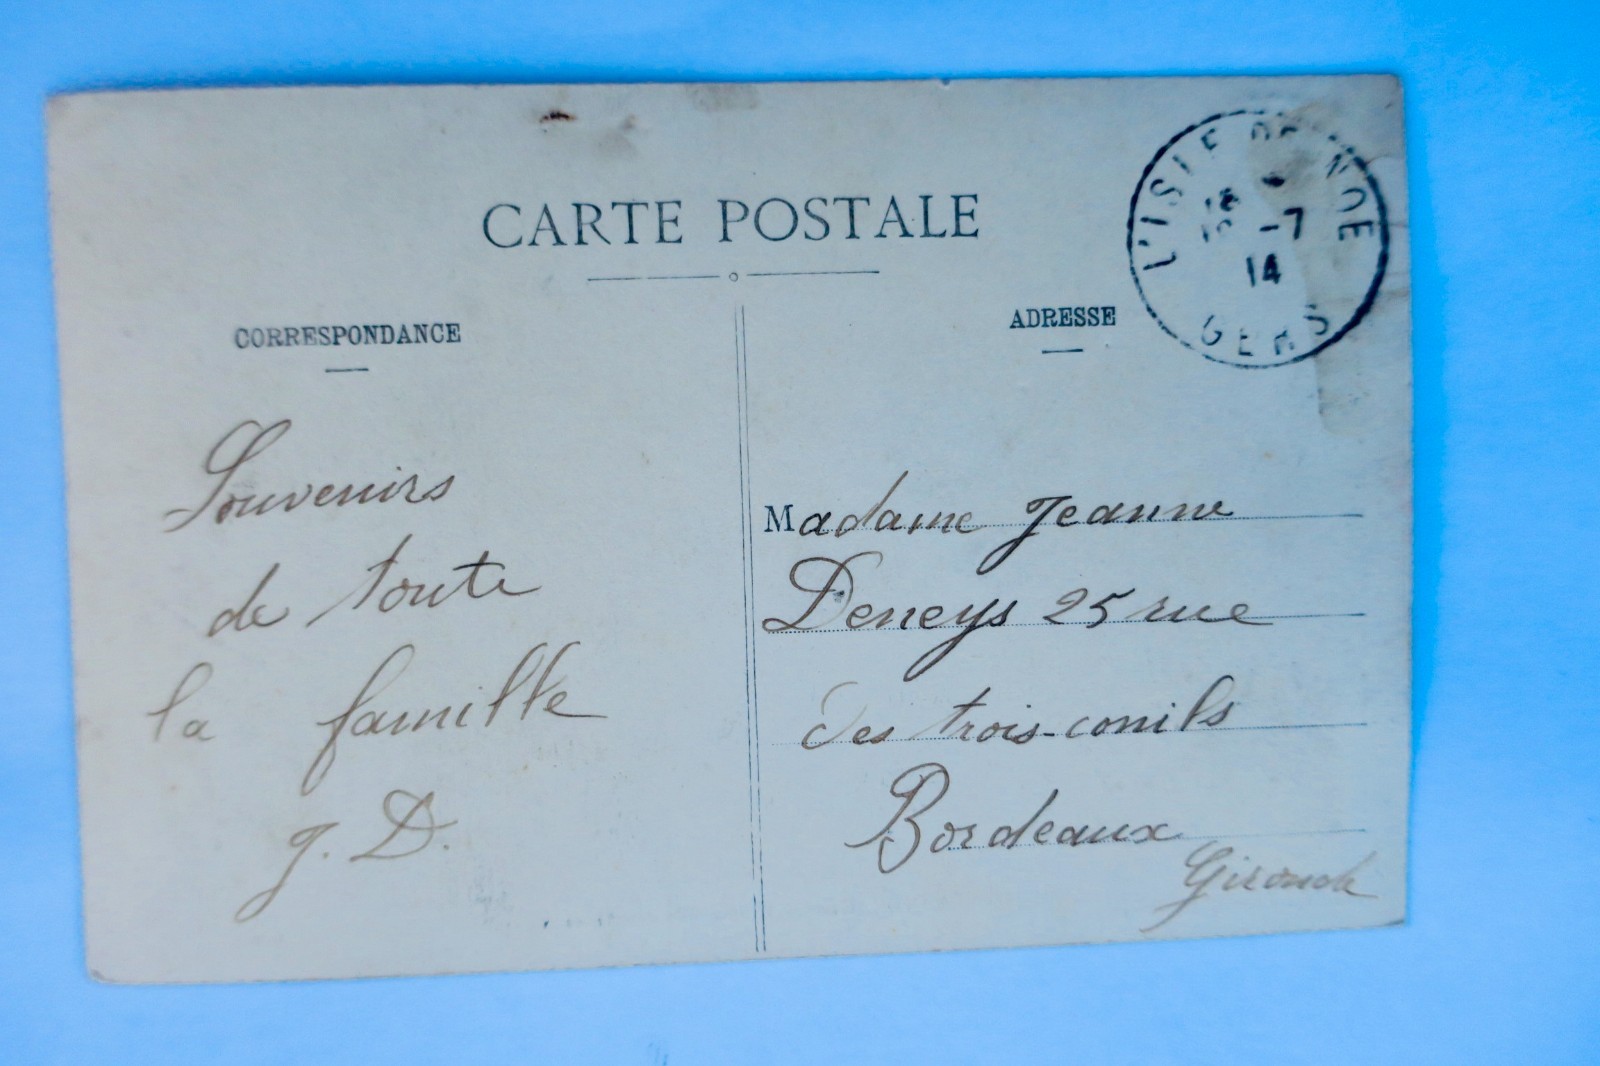 CARTE POSTALE
CORRESPONDANCE
ADRESSE
L'ISLE DE NOE
-7
14
GERS
Souvenirs
de toute
la famille
J. D.
Madame Jeanne
Deneys 25 rue
des trois-conils
Bordeaux
Gironde